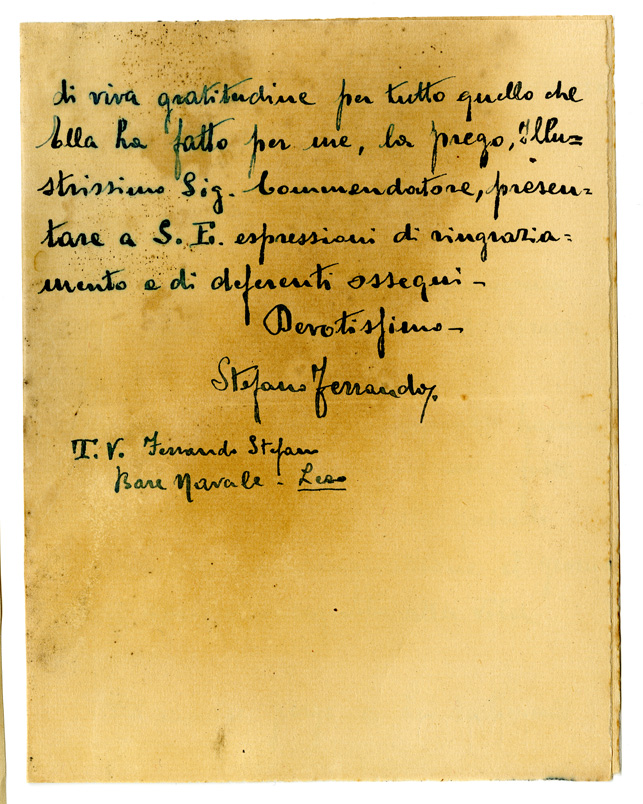 di viva gratitudine per tutto quello che
Ella ha fatto per me, la prego, Illu=
strissimo Sig. Commendatore, presen=
tare a S. E. espressioni di ringrazia=
mento e di deferenti ossequi -
Devotissimo -
Stefano Ferrando
T. V. Ferrando Stefano
Base Navale - Lero